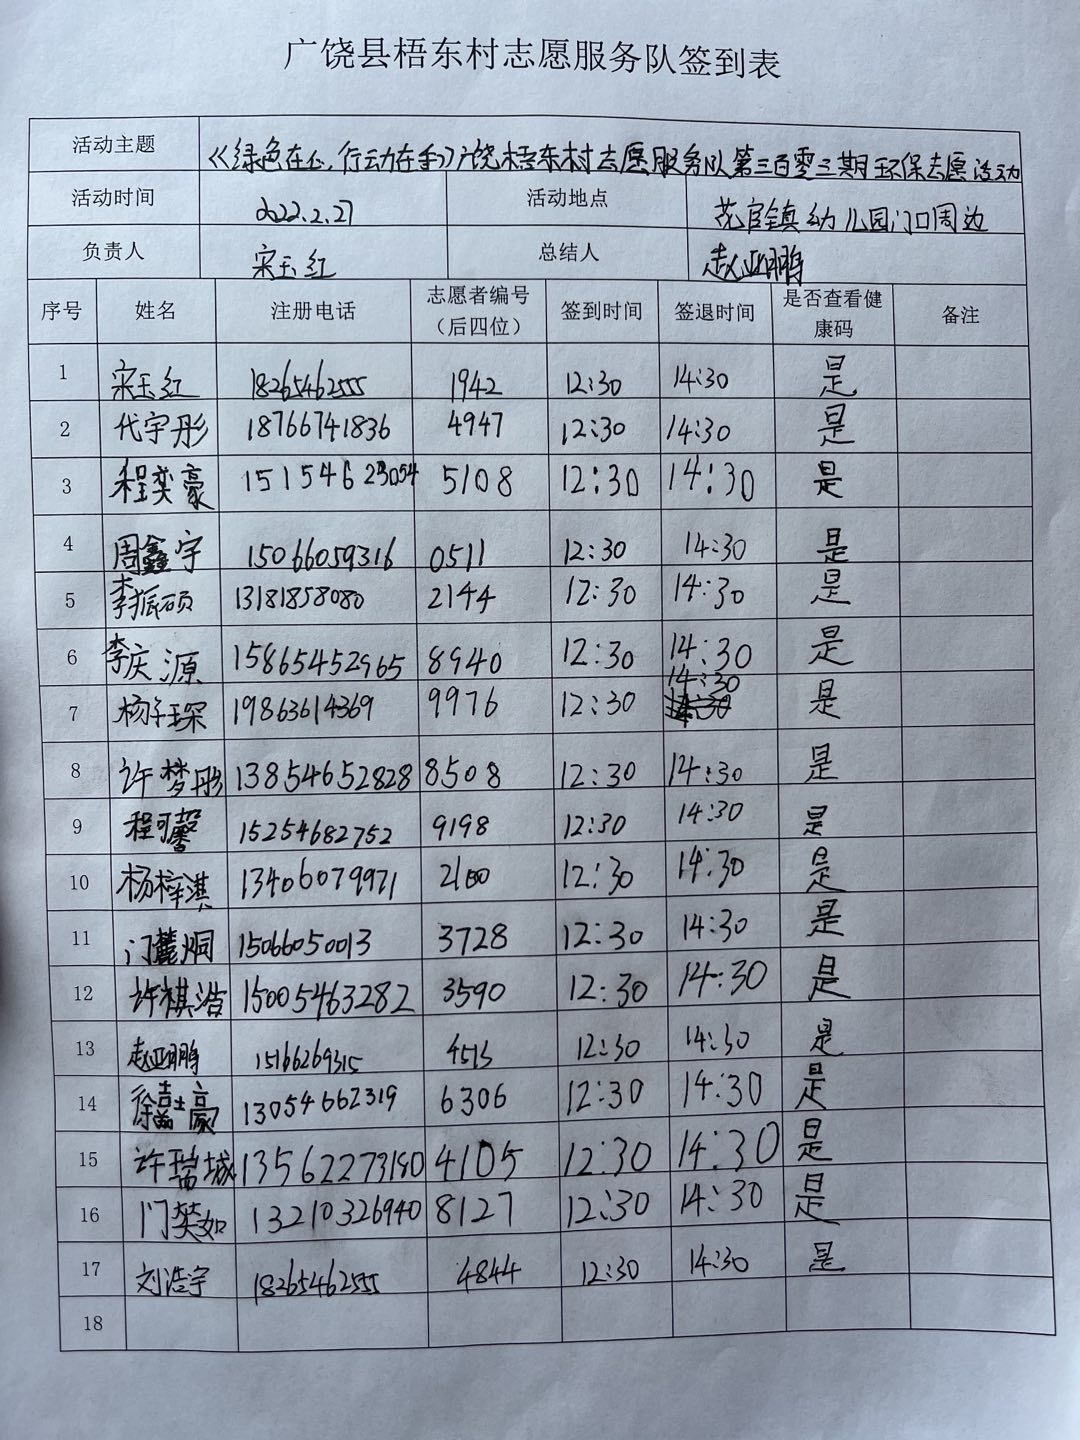 广饶县梧东村志愿服务队签到表
活动主题 《绿色在心,行动在手》广饶梧东村志愿服务队第三百零三期环保志愿活动
活动时间 2022.2.27 活动地点 花官镇幼儿园门口周边
负责人 宋玉红 总结人 赵亚鹏
序号 姓名 注册电话 志愿者编号（后四位） 签到时间 签退时间 是否查看健康码 备注
1 宋玉红 18265462555 1942 12:30 14:30 是
2 代宇彤 18766741836 4947 12:30 14:30 是
3 程奕豪 15154623054 5108 12:30 14:30 是
4 周鑫宇 15066059316 0511 12:30 14:30 是
5 李振硕 13181858080 2144 12:30 14:30 是
6 李庆源 15865452965 8940 12:30 14:30 是
7 杨子琛 19863614369 9976 12:30 14:30 是
8 许梦彤 13854652828 8508 12:30 14:30 是
9 程可馨 15254682752 9198 12:30 14:30 是
10 杨梓淇 13406079971 2100 12:30 14:30 是
11 门麓炯 15066050013 3728 12:30 14:30 是
12 许祺浩 15005463282 3590 12:30 14:30 是
13 赵亚鹏 15166269315 4513 12:30 14:30 是
14 徐嘉豪 13054662319 6306 12:30 14:30 是
15 许瑞城 13562273180 4105 12:30 14:30 是
16 门樊如 13210326940 8127 12:30 14:30 是
17 刘浩宇 18265462555 4844 12:30 14:30 是
18